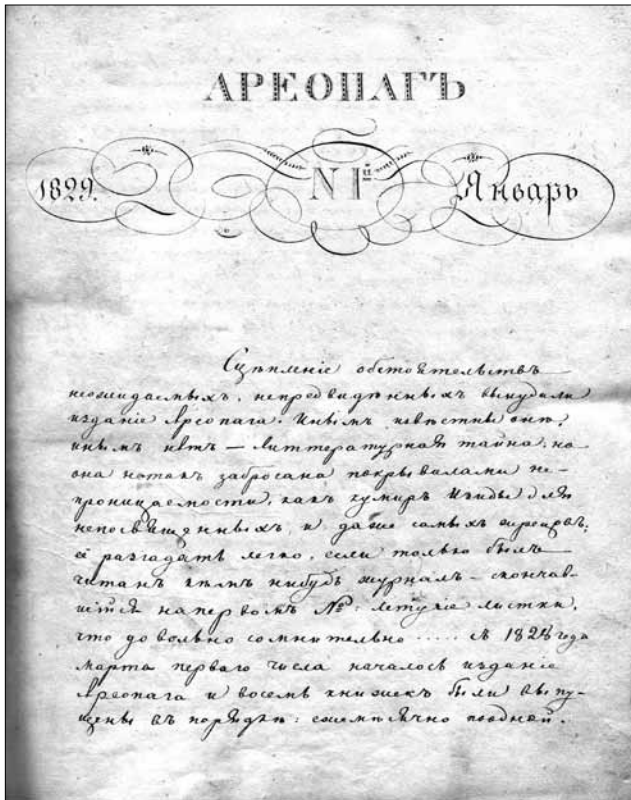 АРЕОПАГЪ
1829. N 1й Январь
Сцѣпленіе обстоятельствъ
неожидаемыхъ, непредвидѣнныхъ вынудили
изданіе Ареопага. Инымъ извѣстны онѣ,
инымъ нѣтъ — литтературная тайна, но
она не такъ забросана покрывалами не-
проницаемости, какъ кумиръ Изиды для
непосвященныхъ, и даже самыхъ
её разгадать легко, если только былъ
читанъ кѣмъ нибудь журналъ — скончав-
шійся на первомъ №: летучіе листки,
что довольно сомнительно ..... съ 1828 года
марта перваго числа началось изданіе
Ареопага и восемь книжекъ были выпу-
щены въ порядкѣ: ежемѣсячно по одной.